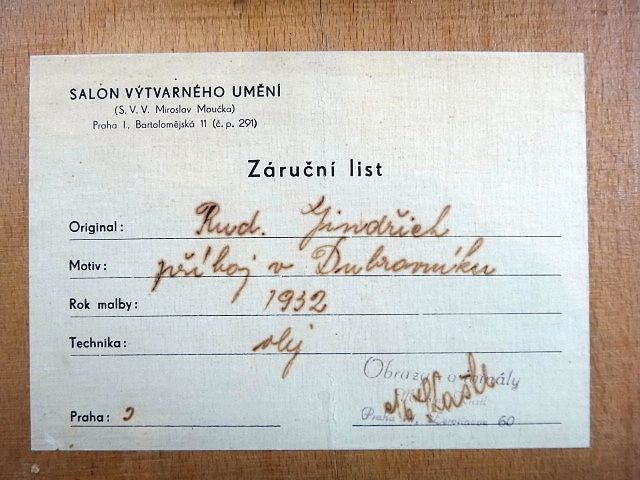 SALON VÝTVARNÉHO UMĚNÍ
(S. V. V. Miroslav Moučka)
Praha I., Bartolomějská 11 (č. p. 291)
Záruční list
Original: Rud. Jindřich
Motiv: příboj v Dubrovníku
Rok malby: 1932
Technika: olej
Obrazy originály
Praha: 60